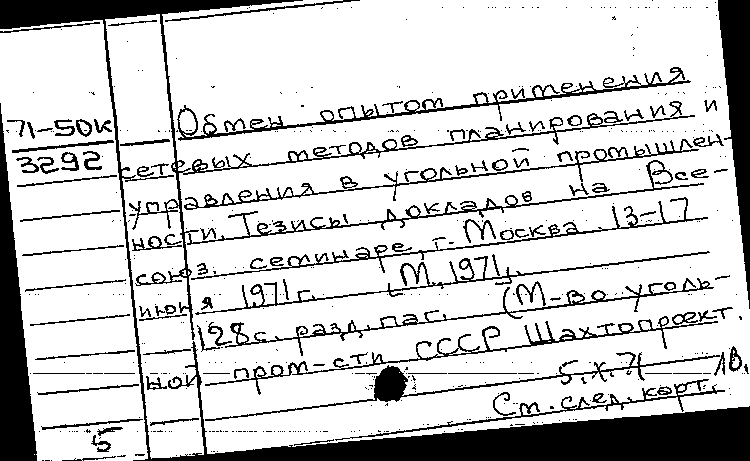 71-50к
3292
Обмен опытом применения
сетевых методов планирования и
управления в угольной промышлен-
ности. Тезисы докладов на Все-
союз. семинаре, г. Москва 13-17
июня 1971 г. [М., 1971].
128 с. разд. паг. (М-во уголь-
ной пром-сти СССР. Шахтопроект.
5.X.71
См. след. карт.
5